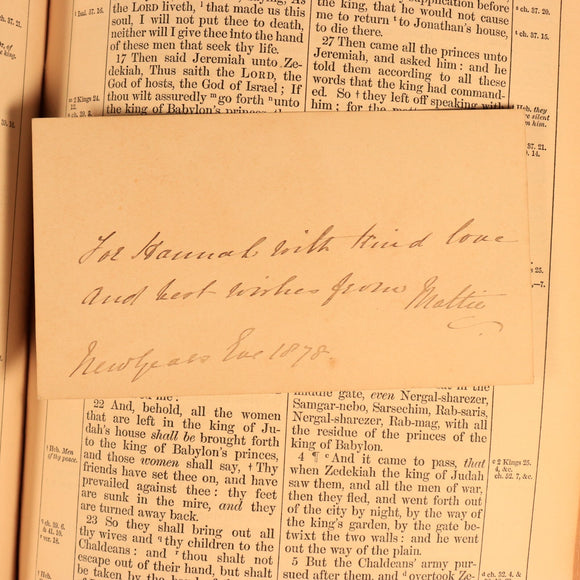 the LORD liveth, ¹ that made us this
soul, I will not put thee to death,
neither will I give thee into the hand
of these men that seek thy life.
17 Then said Jeremiah unto Ze-
dekiah, Thus saith the LORD, the
God of hosts, the God of Israel; If
thou wilt assuredly ᵐ go forth ⁿ unto
the king of Babylon's princes,
supplication before
the king, that he would not cause
me to return ᵗ to Jonathan's house,
to die there.
27 Then came all the princes unto
Jeremiah, and asked him: and he
told them according to all these
words that the king had command-
ed. So † they left off speaking with
him; for the matter
For Hannah with kind love
and best wishes from Mattie
New Years Eve 1878
22 And, behold, all the women
that are left in the king of Ju-
dah's house shall be brought forth
to the king of Babylon's princes,
and those women shall say, † Thy
friends have set thee on, and have
prevailed against thee: thy feet
are sunk in the mire, and they
are turned away back.
23 So they shall bring out all
thy wives and ᵠ thy children to the
Chaldeans: and ʳ thou shalt not
escape out of their hand, but shalt
be taken by the hand
middle gate, even Nergal-sharezer,
Samgar-nebo, Sarsechim, Rab-saris,
Nergal-sharezer, Rab-mag, with all
the residue of the princes of the
king of Babylon.
4 ¶ ᶜ And it came to pass, that
when Zedekiah the king of Judah
saw them, and all the men of war,
then they fled, and went forth out
of the city by night, by the way of
the king's garden, by the gate be-
twixt the two walls: and he went
out the way of the plain.
5 But the Chaldeans' army pur-
sued after them, and overtook Ze-
† Heb. men
of thy peace.
ᵉ 2 Kings 25.
4, &c.
ch. 52. 7, &c.
ch. 37. 20.
ch. 37. 15.